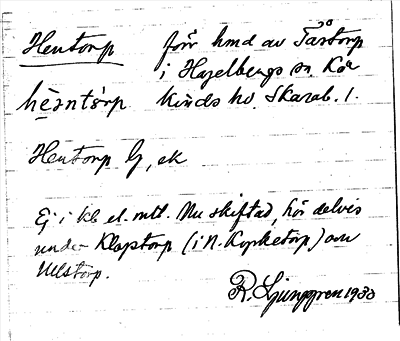 Hentorp förr hmd av Tåstorp
i Hagelbergs sn. Kå-
hèǝntàrp kinds hd. Skarab. l.
Hentorp G, ek
Ej i kb el. mtl. Nu skiftad, hör delvis
under Klaptorp (i N. Kyrketorp) och
Ulstorp.
R. Ljunggren 1933